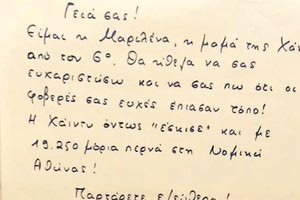 Γειά σας!
Είμαι η Μαριλένα, η μαμά της Χάι
από τον 6ο. Θα ήθελα να σας
ευχαριστώσω και να σας πω ότι οι
φοβερές σας ευχές έπιασαν τόπο!
Η Χάιντυ όντως "έσκισε" και με
19.250 μόρια περνά στη Νομική
Αθήνας!
Παρτάρετε ελεύθερα!